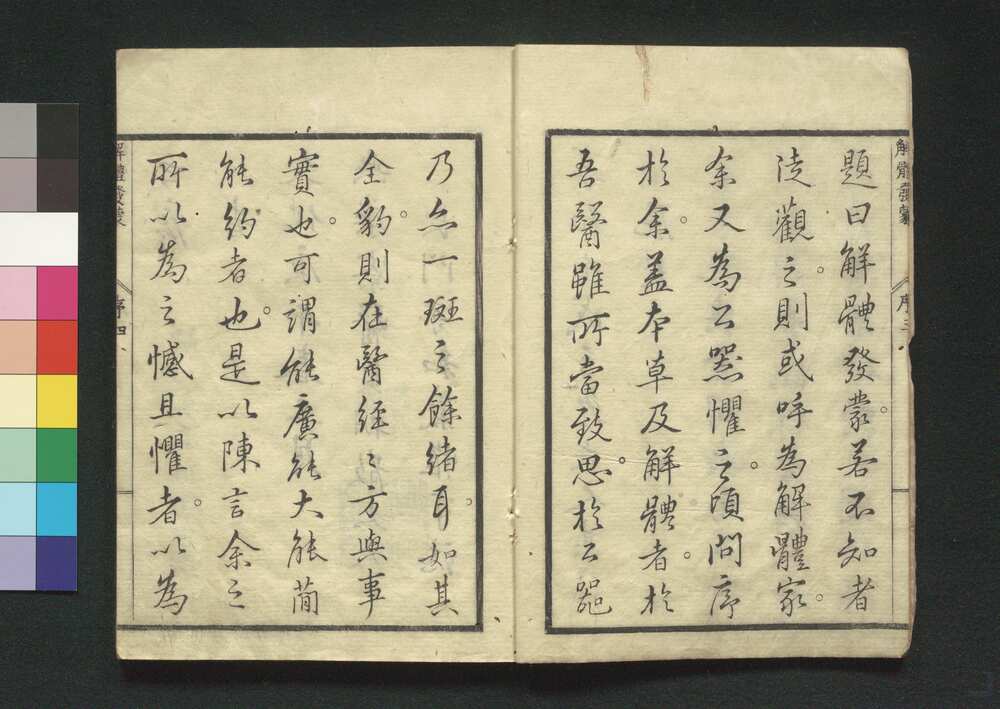 解體發蒙
序三
題曰解體發蒙。若不知者
徒觀之。則或呼為解體家。
余又為公器懼之。頃問序
於余。蓋本草及解體者。於
吾醫雖所當致思。於公器
乃亦一斑之餘緒耳。如其
全豹。則在醫經經方與事
實也。可謂能廣能大能簡
能約者也。是以陳言余之
所以為之憾且懼者。以為
解體發蒙
序四